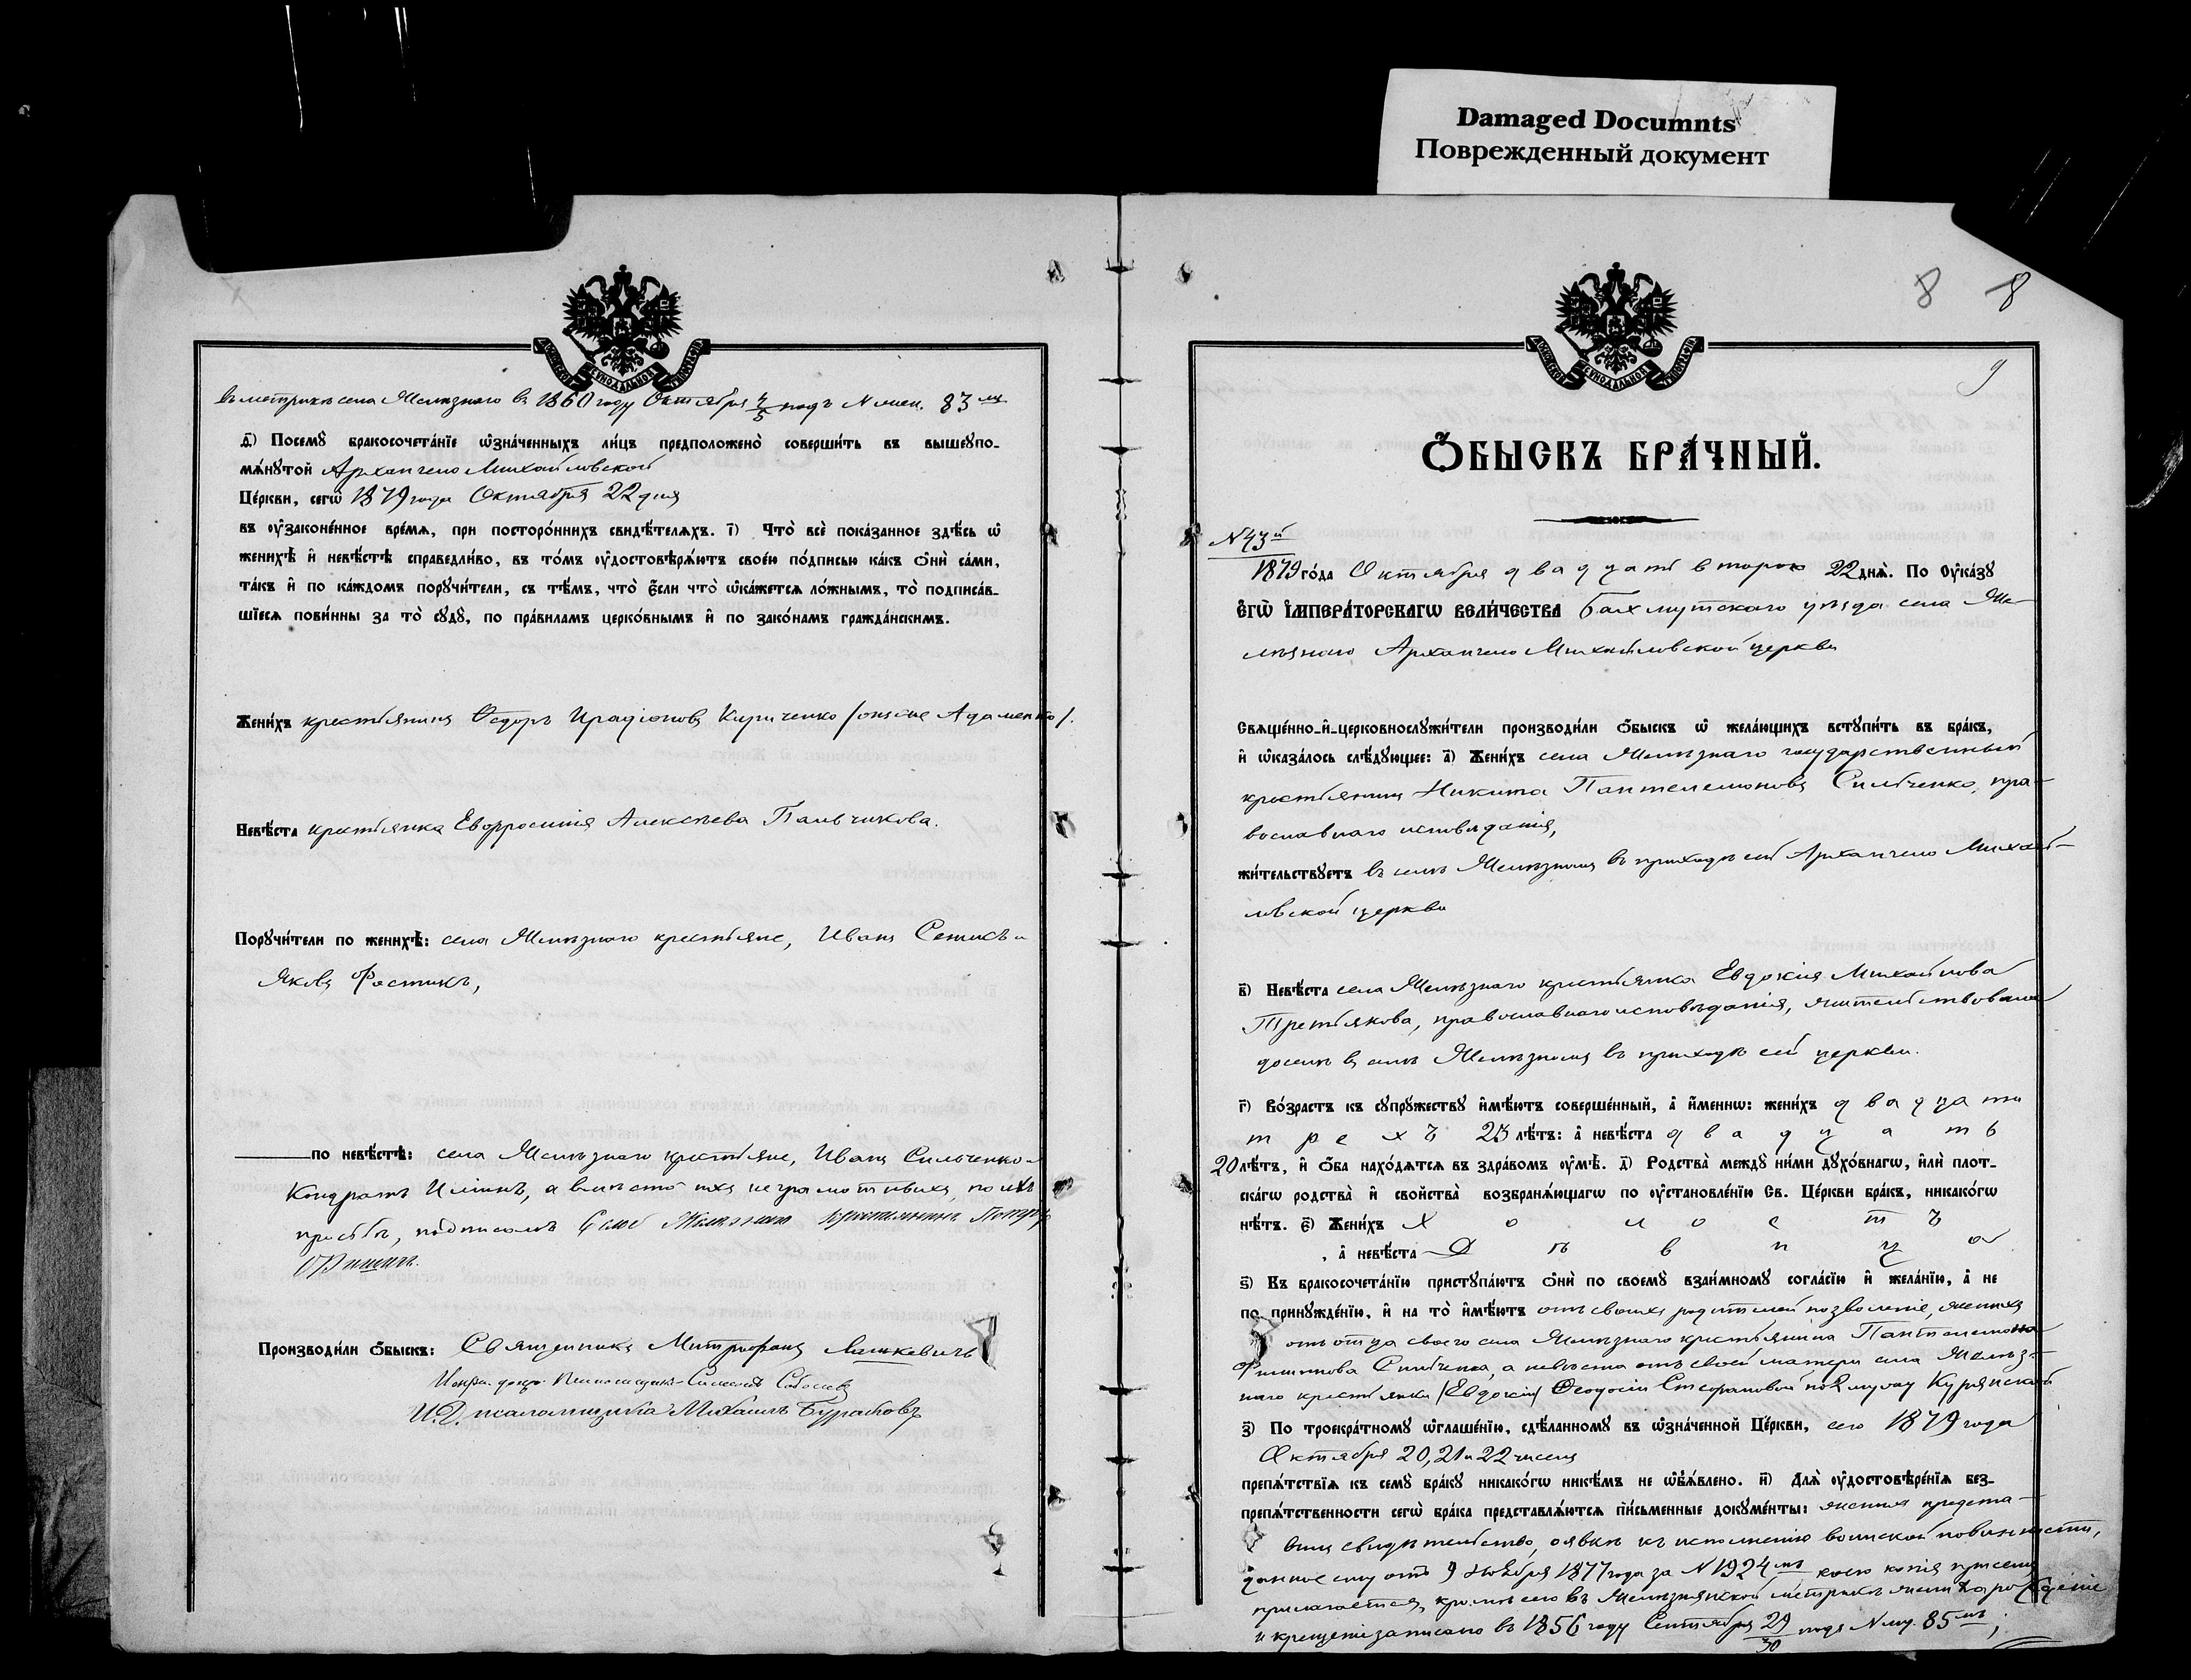 Damaged Documnts
Поврежденный документ
въ метрикѣ села Желѣзнаго въ 1860 году Октября 4/5 подъ N женс. 83 мъ
д҃) Посемꙋ̀ бракосочета́нїе ѡ҆зна́ченныхъ ли́цъ предположено̀ соверши́ть въ вышеꙋпо-
мѧ́нꙋтой Архангело Михайловской
Це́ркви, сегѡ̀ 1879 года Октября 22 дня
въ ᲂу҆законе́нное вре́мѧ, при посторо́ннихъ свидѣ́телѧхъ. і҃) Что̀ всѐ пока́занное здѣ́сь ѡ҆
женихѣ̀ и҆ невѣ́стѣ справедли́во, въ то́мъ ᲂу҆достовѣрѧ́ютъ свое́ю по́дписью ка́къ ѻ҆нѝ са́ми,
та́къ и҆ по ка́ждомъ порꙋчи́тели, съ тѣ́мъ, что̀ є҆́сли что̀ ѡ҆ка́жется ло́жнымъ, то̀ подписа́в-
шїесѧ пови́нны за то̀ сꙋдꙋ̀, по пра́виламъ церко́внымъ и҆ по зако́намъ гражда́нскимъ.
Жени́хъ крестьянинъ Ѳедоръ Ирадіоновъ Кириченко /онъ же Адаменко/.
Невѣ́ста крестьянка Евфросинія Алексѣева Пальчикова.
Порꙋчи́тели по женихѣ̀: села Желѣзнаго крестьяне, Иванъ и
Яковъ Фастикъ,
по невѣ́стѣ: села Желѣзнаго крестьяне, Иванъ Сильченко и
Кондратъ Илінъ, а вмѣсто ихъ неграмотныхъ, по ихъ
просьбѣ, подписалъ Села Желѣзнаго крестьянинъ Петръ
Производи́ли ѻ҆́быскъ: Священникъ Митрофанъ Лашкевичъ
И.Д. псаломщика Михаилъ Бурасовъ
8 8
9
Ѻ҆БЫСКЪ БРА́ЧНЫЙ.
N 43й
1879 го́да Октября двадцать второго 22 днѧ̀. По Оу҆ка́зꙋ
Є҆гѡ̀ І҆мпера́торскагѡ вели́чества Бахмутскаго уѣзда села Же-
лѣзнаго Архангело Михайловской церкви
Свѧще́нно-и҆-церковнослꙋжи́тели производи́ли ѻ҆́быскъ ѡ҆ жела́ющихъ встꙋпи́ть въ бра́къ,
и҆ ѡ҆каза́лось слѣ́дꙋющее: а҃) Жени́хъ села Желѣзнаго государственный
крестьянинъ Никита Пантелемоновъ Сильченко, пра-
вославнаго исповѣданія,
жи́тельствꙋетъ въ селѣ Желѣзномъ въ приходѣ сей Архангело Михай-
ловской церкви
в҃) Невѣ́ста села Желѣзнаго крестьянка Евдокія Михайлова
Третьякова, православнаго исповѣданія, жительствовала
доселѣ въ селѣ Желѣзномъ въ приходѣ сей церкви.
г҃) Во́зрастъ къ сꙋпрꙋ́жествꙋ и҆мѣ́ютъ соверше́нный, а҆ и҆́меннѡ: жени́хъ двадцати
трехъ 23 лѣ́тъ: а҆ невѣ́ста двадцать
20 лѣ́тъ, и҆ ѻ҆́ба нахо́дѧтсѧ въ здра́вомъ ᲂу҆мѣ̀. д҃) Родства̀ междꙋ̀ ни́ми дꙋхо́внагѡ, и҆лѝ плот-
ска́гѡ родства̀ и҆ свойства̀ возбранѧ́ющагѡ по ᲂу҆становле́нїю Св. Це́ркви бра́къ, никако́гѡ
нѣ́тъ. є҃) Жени́хъ Холостъ
, а҆ невѣ́ста Дѣвица
ѕ҃) Къ бракосочета́нїю пристꙋпа́ютъ ѻ҆нѝ по своемꙋ̀ взаи́мномꙋ согла́сїю и҆ жела́нїю, а҆ не
по принꙋжде́нїю, и҆ на то̀ и҆мѣ́ютъ отъ своихъ родителей позволеніе, женихъ
отъ отца своего села Желѣзнаго крестьянина Пантелемона
Филиппова Сильченка, а невѣста отъ своей матери села Желѣз-
наго крестьянки /Евдокіи/ Ѳеодосіи Стефановой по 2 мужу Курянской
з҃) По троекра́тномꙋ ѡ҆глаше́нїю, сдѣ́ланномꙋ въ ѡ҆зна́ченной Це́ркви, сего 1879 года
Октября 20, 21 и 22 чиселъ
препѧ́тствїѧ къ семꙋ̀ бра́кꙋ никако́гѡ никѣ́мъ не ѡ҆б̾ѧ́влено. и҃) Длѧ̀ ᲂу҆достовѣре́нїѧ без-
препѧ́тственности сегѡ̀ бра́ка представлѧ́ютсѧ пи́сьменные докꙋме́нты: женихъ предста-
вилъ свидѣтельство, о явкѣ къ исполненію воинской повинности,
данное ему отъ 9 Ноября 1877 года за N 1924 мъ коего копія при семъ
прилагается, кромѣ сего въ Желѣзнянской метрикѣ жениха рожденіе
и крещеніе записано въ 1856 году Сентября 29/30 подъ N муж. 85 мъ;